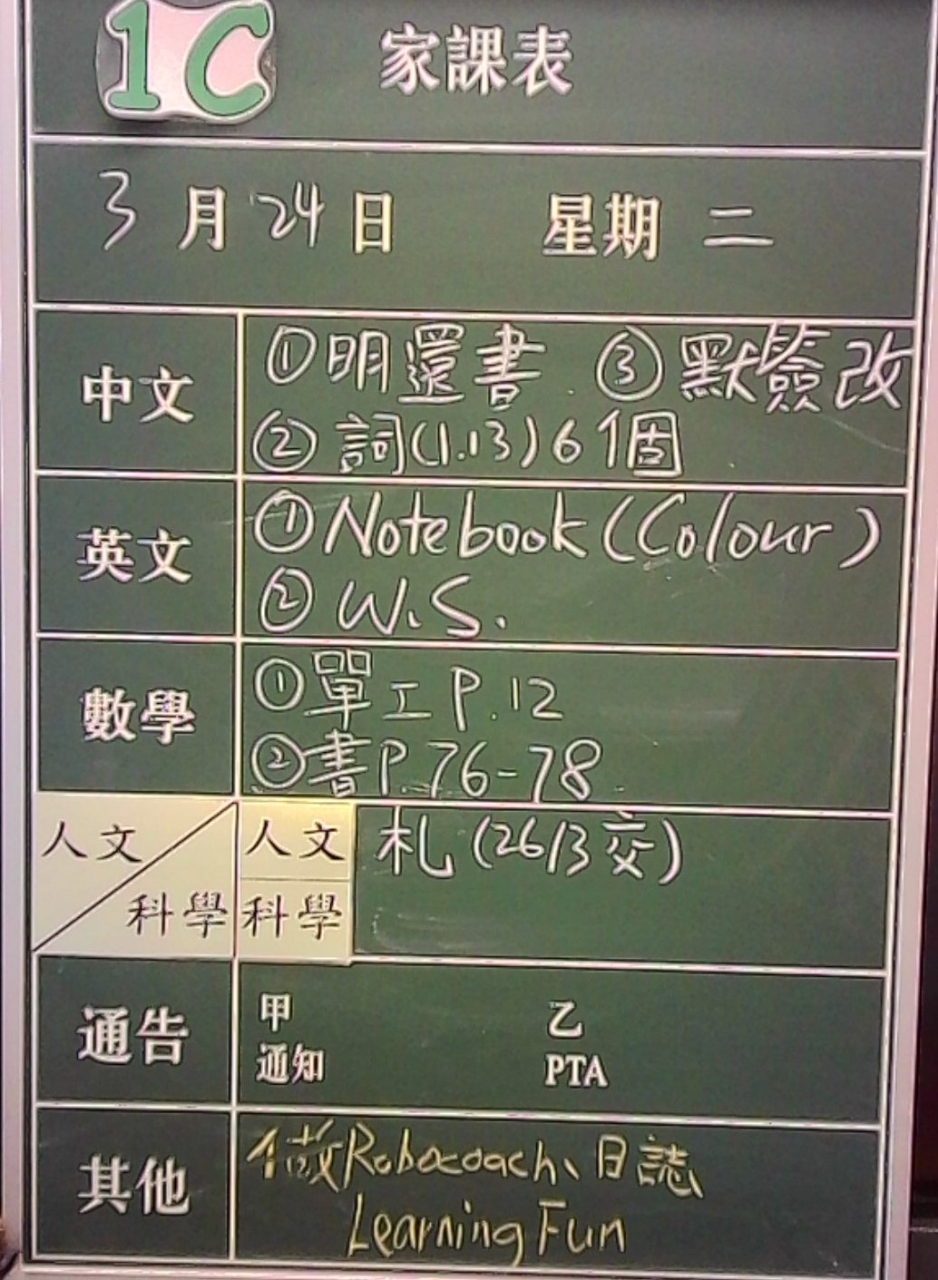 1C 家課表
3月24日 星期二
中文 ①明還書 ③默簽改
②詞(1.13)6個
英文 ①Notebook(Colour)
②W.S.
數學 ①單工P.12
②書P.76-78
人文 人文 札(26/3交)
科學 科學
通告 甲 乙
通知 PTA
其他 做Robocoach、日誌
Learning Fun